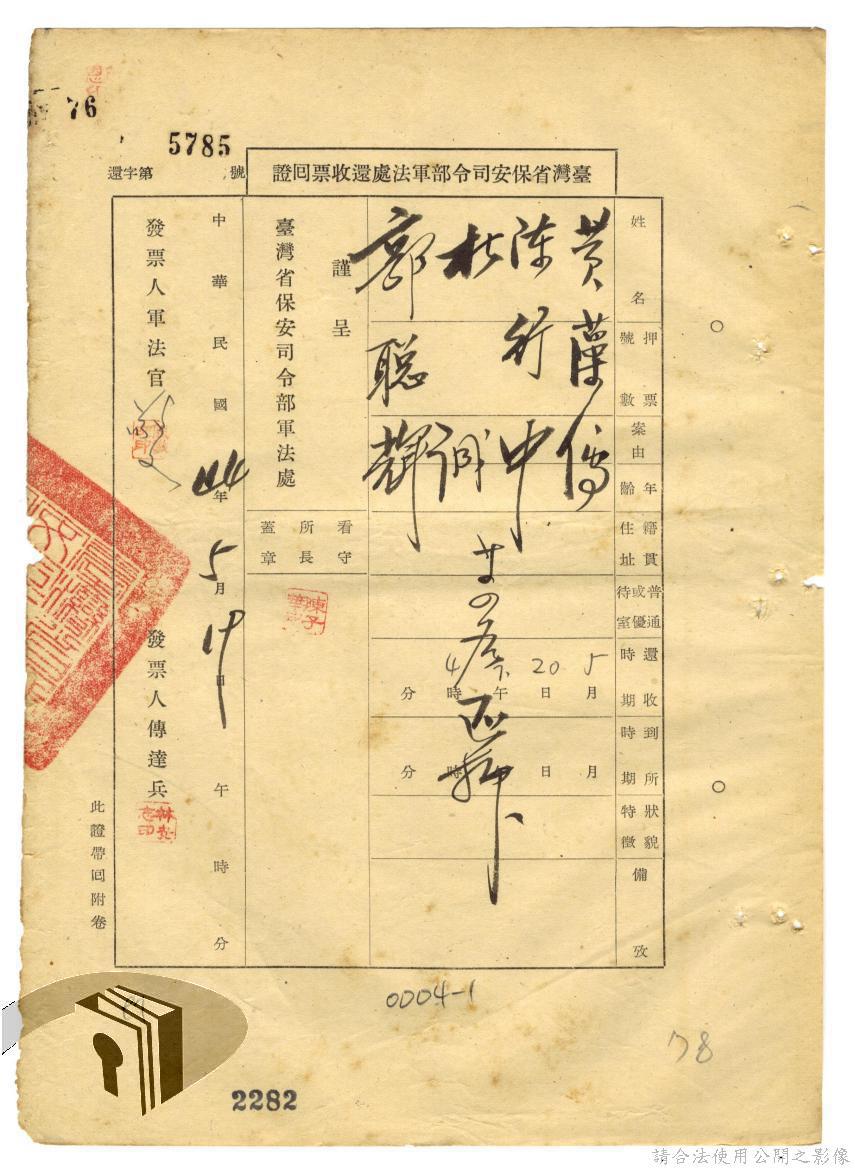 76
5785
還字第 號
臺灣省保安司令部軍法處還收票回證
姓名
押票號數
案由
年齡
籍貫住址
普通或優待室
還收時期
到所時期
狀貌特徵
備攷
黃 傳
陳行中
杜誠
郭聰輝
等四名
5月20日 午4時 分
月 日 午 時 分
謹呈
臺灣省保安司令部軍法處
看守所長蓋章
中華民國44年5月19日 午 時 分
發票人軍法官
發票人傳達兵
此證帶回附卷
0004-1
78
2282
請合法使用公開之影像